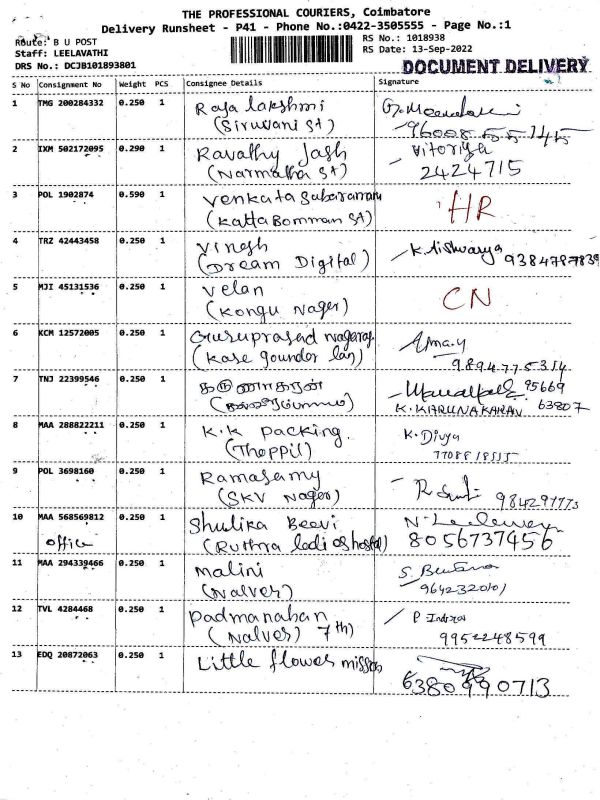 THE PROFESSIONAL COURIERS, Coimbatore
Delivery Runsheet - P41 - Phone No.:0422-3505555 - Page No.:1
Route: B U POST
RS No.: 1018938
Staff: LEELAVATHI
RS Date: 13-Sep-2022
DRS No.: DCJB101893801
DOCUMENT DELIVERY
S No Consignment No Weight PCS Consignee Details Signature
1 TMG 200284332 0.250 1 Raja lakshmi
(Siruvani St)
2 IXM 502172095 0.290 1 Ravathy Jash Vitoriya
(Narmatha St) 2424715
3 POL 1902874 0.590 1 Venkata
(Katta Bomman St) HR
4 TRZ 42443458 0.250 1 Vinesh K. Aishwarya
(Dream Digital) 9384787839
5 MJI 45131536 0.250 1 Velan CN
(Kongu Nager)
6 KCM 12572005 0.250 1 Guruprasad nagaraj
(Kase gounder lan) 9894775314
7 TNJ 22399546 0.250 1 கருணாகரன் 95669
K. KARUNAKARAN 63807
8 MAA 288822211 0.250 1 K.K Packing K. Divya
(Thoppil)
9 POL 3698160 0.250 1 Ramasamy
(SKV Nager)
10 MAA 568569812 0.250 1 Shulika Beevi
office (Ruthra ladios hostal) 8056737456
11 MAA 294339466 0.250 1 Malini
(Nalver)
12 TVL 4284468 0.250 1 Padmanaban
(Nalver) 7th) 9952248599
13 EDQ 20872063 0.250 1 Little flower
6380990713